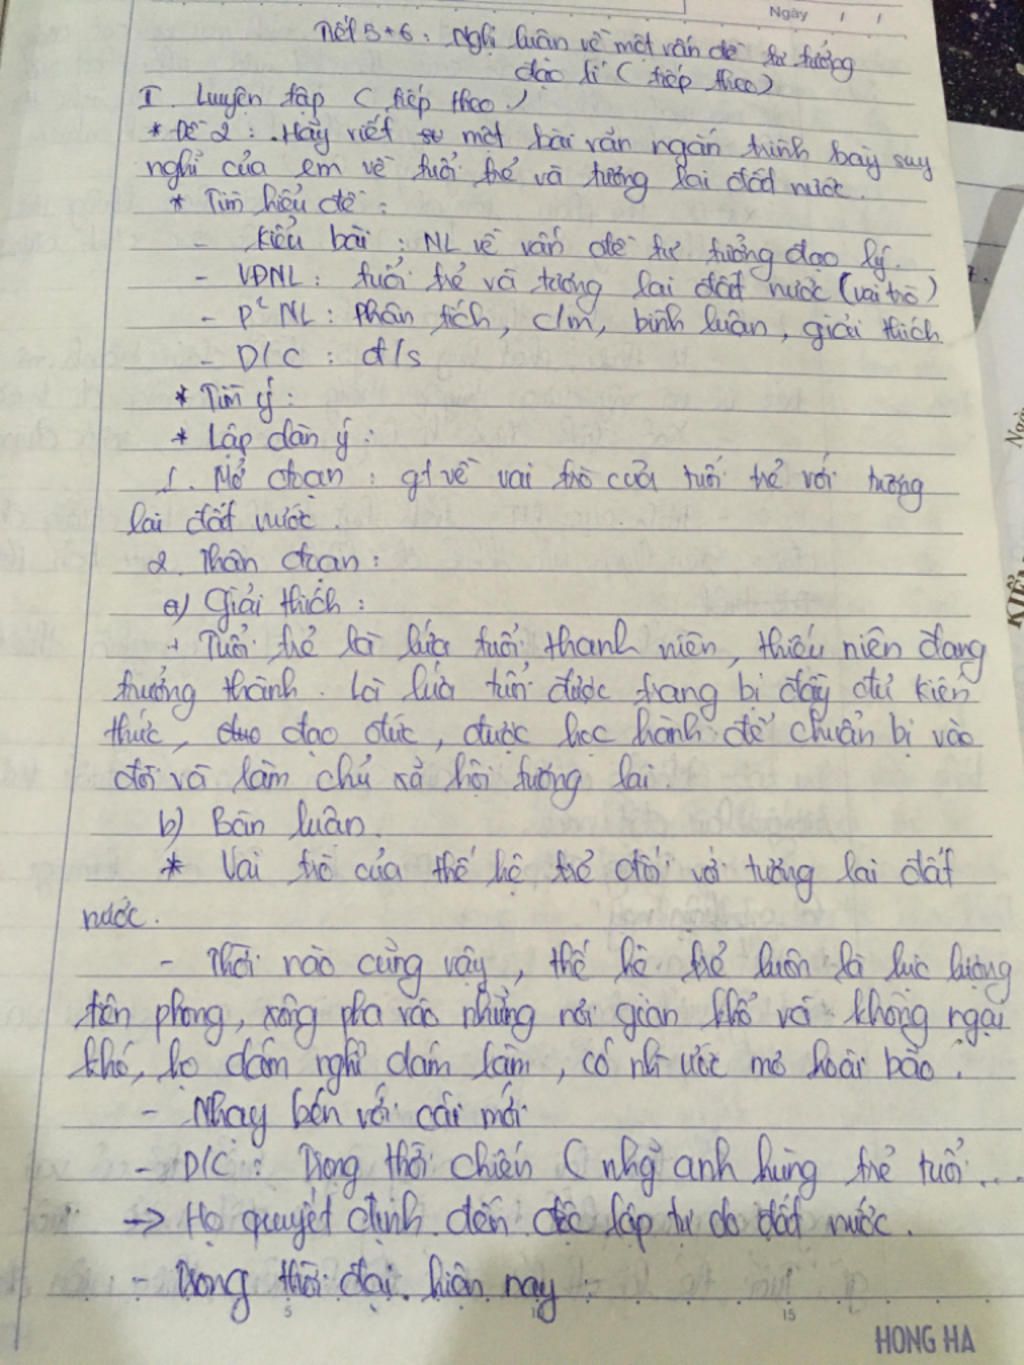 Ngày / /
Tiết 5+6: Nghị luận về một vấn đề tư tưởng
đạo lí (tiếp theo)
I. Luyện tập (tiếp theo)
* Đề 2: Hãy viết một bài văn ngắn trình bày suy
nghĩ của em về tuổi trẻ và tương lai đất nước.
* Tìm hiểu đề:
- Kiểu bài: NL về vấn đề tư tưởng đạo lý.
- VĐNL: tuổi trẻ và tương lai đất nước (vai trò)
- P² NL: Phân tích, c/m, bình luận, giải thích
- D/C: đ/s
* Tìm ý:
* Lập dàn ý:
1. Mở đoạn: gt về vai trò của tuổi trẻ với tương
lai đất nước.
2. Thân đoạn:
a) Giải thích:
+ Tuổi trẻ là lứa tuổi thanh niên, thiếu niên đang
trưởng thành. Là lứa tuổi được trang bị đầy đủ kiến
thức, đạo đức, được học hành để chuẩn bị vào
đời và làm chủ xã hội tương lai.
b) Bàn luận.
* Vai trò của thế hệ trẻ đối với tương lai đất
nước.
- Thời nào cũng vậy, thế hệ trẻ luôn là lực lượng
tiên phong, xông pha vào những nơi gian khổ và không ngại
khó, họ dám nghĩ dám làm, có nh ước mơ hoài bão.
- Nhạy bén với cái mới
- D/C: Trong thời chiến (nhg anh hùng trẻ tuổi...
-> Họ quyết định đến độc lập tự do đất nước.
- Trong thời đại hiện nay:
5 10 15
HONG HA